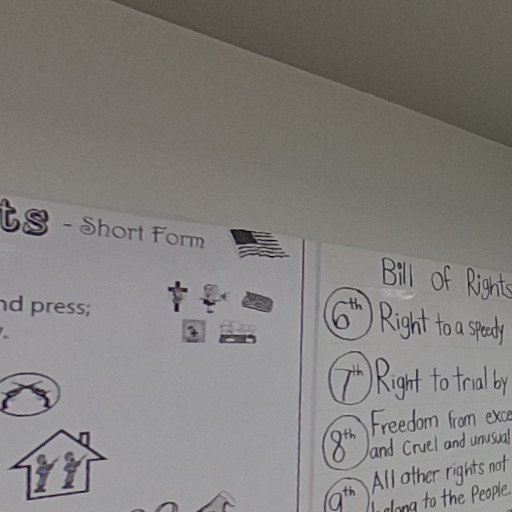 ts - Short Form
nd press;
Bill Of Rights
6th Right to a speedy
7th Right to trial by
8th Freedom from exce
and cruel and unusual
9th All other rights not
belong to the People.